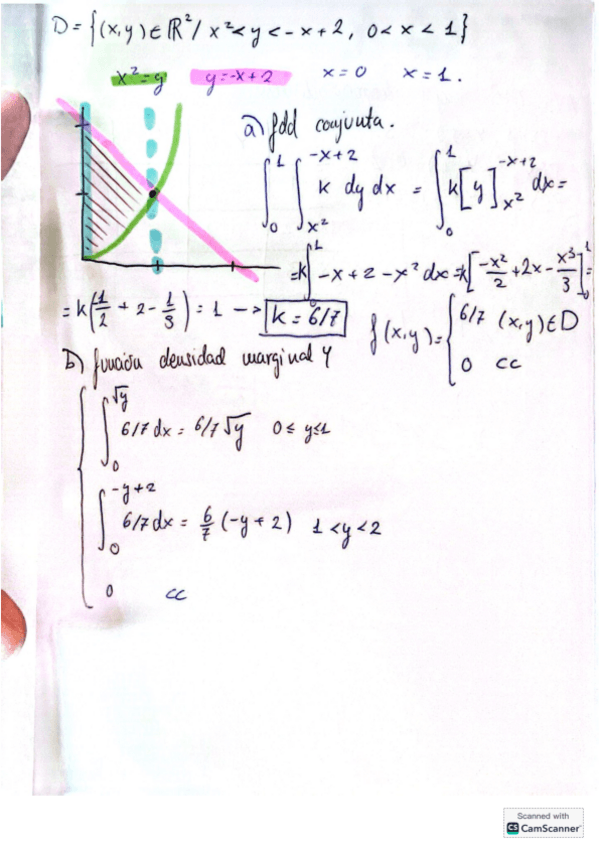 D = {(x,y) ∈ ℝ² / x² < y < -x + 2, 0 < x < 1}
x² = y   y = -x + 2   x = 0   x = 1.
a) fdd conjunta.
∫₀¹ ∫_{x²}^{-x+2} k dy dx = ∫₀¹ k[y]_{x²}^{-x+2} dx =
= k∫₀¹ -x + 2 - x² dx = k[-x²/2 + 2x - x³/3]₀¹ =
= k(1/2 + 2 - 1/3) = 1 → k = 6/7   f(x,y) = { 6/7 (x,y) ∈ D
0   cc
b) función densidad marginal Y
∫₀^{√y} 6/7 dx = 6/7 √y   0 ≤ y ≤ 1
∫₀^{-y+2} 6/7 dx = 6/7 (-y + 2)   1 < y < 2
0   cc
Scanned with
CS CamScanner